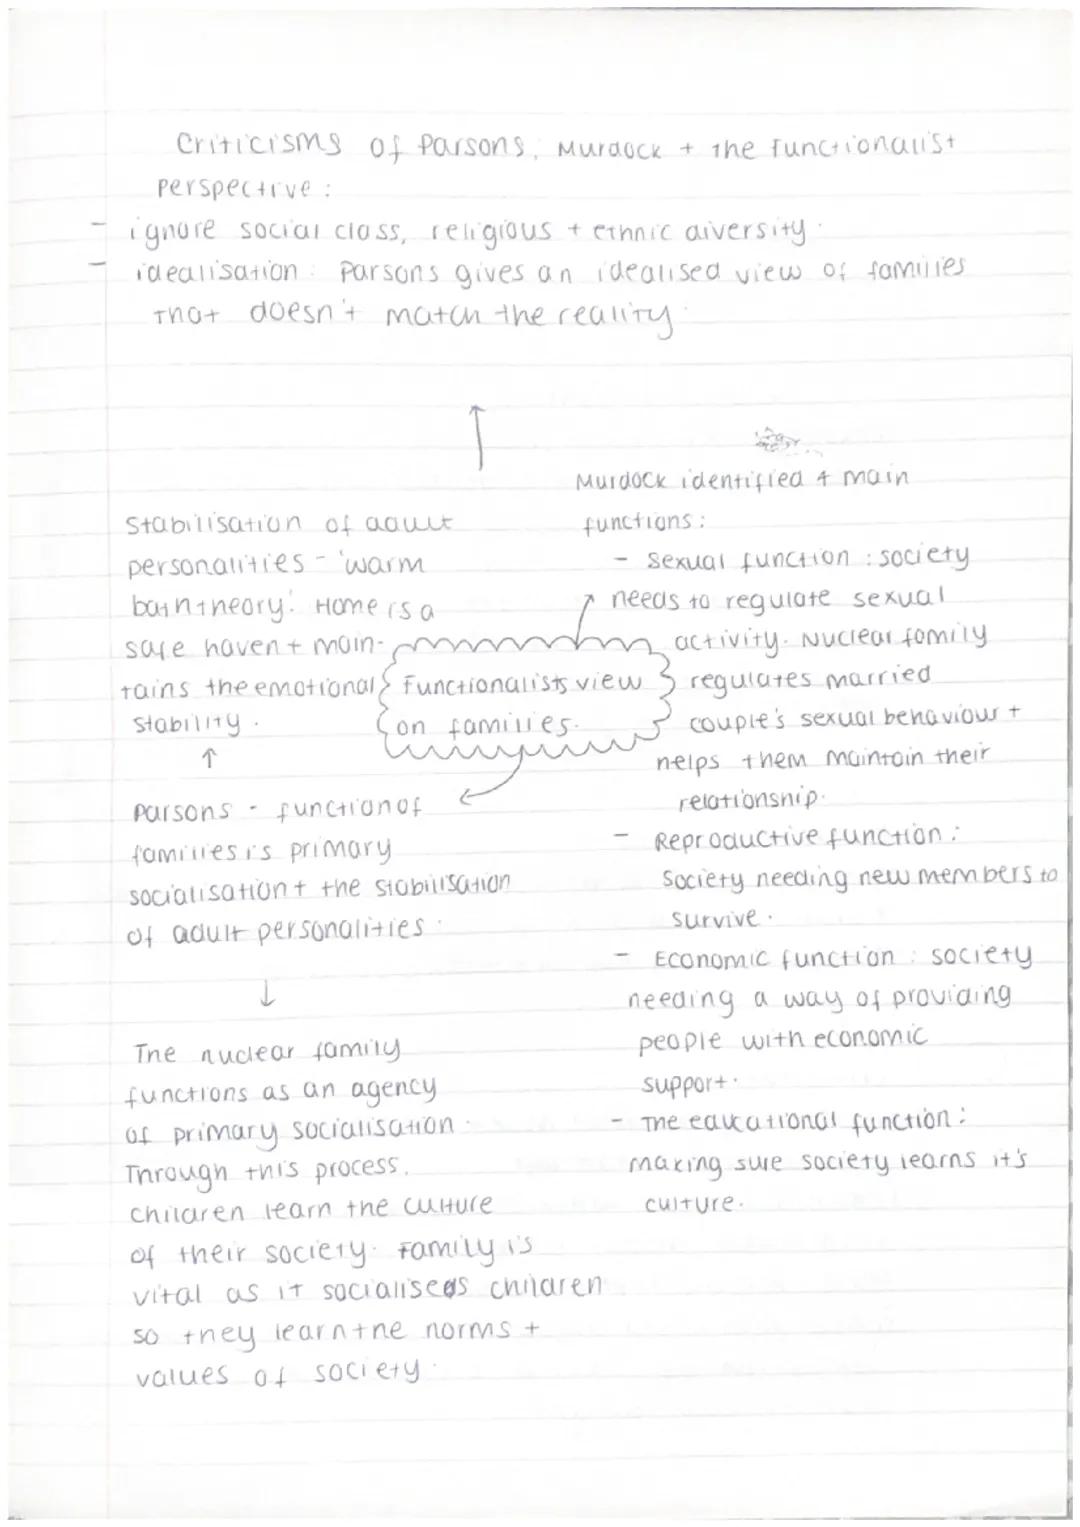 Criticisms of Parsons, Murdock + The Functionalist
perspective :
- ignore social class, religious + ethnic diversity.
- idealisation : Parsons gives an idealised view of families
that doesn't match the reality.
↑
Stabilisation of adult
personalities - 'warm
bath theory'. Home is a
safe haven + main-
tains the emotional
stability.
↑
Functionalists view
on families.
Parsons - function of
families is primary
socialisation + the stabilisation
of adult personalities.
↓
The nuclear family
functions as an agency
of primary socialisation.
Through this process,
children learn the culture
of their society. Family is
vital as it socialises children
so they learn the norms +
values of society.
Murdock identified 4 main
functions :
- Sexual function : society
needs to regulate sexual
activity. Nuclear family
regulates married
couple's sexual behaviour +
helps them maintain their
relationship.
- Reproductive function :
Society needing new members to
survive.
- Economic function : society
needing a way of providing
people with economic
support.
- The educational function :
making sure society learns it's
culture.